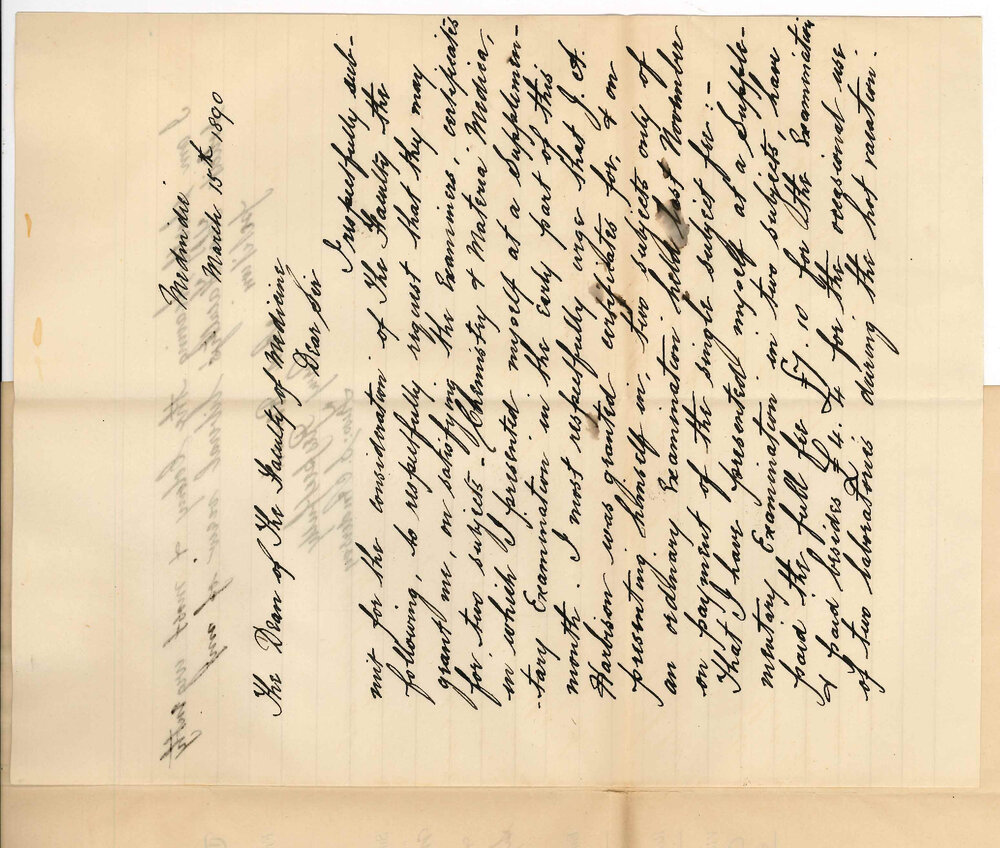 Medindie
March 10th 1890
The Dean of The Faculty of Medicine
Dear Sir
I respectfully sub-
mit for the consideration of The Faculty the
following, to respectfully request that they may
grant me, on satisfying the Examiners, certificates
for two subjects - Chemistry & Materia Medica,
in which I presented myself at a Supplemen-
-tary Examination in the early part of this
month. I most respectfully urge that J. A.
Harbison was granted certificates for, & on
presenting himself in, two subjects only of
an ordinary Examination held last November
on payment of the single subject fee :-
That I have presented myself at a Supple-
mentary Examination in two subjects, have
paid the full fee £7. 10 for the Examination
& paid besides £4. 4 for the occasional use
of two laboratories during the hot vacation.